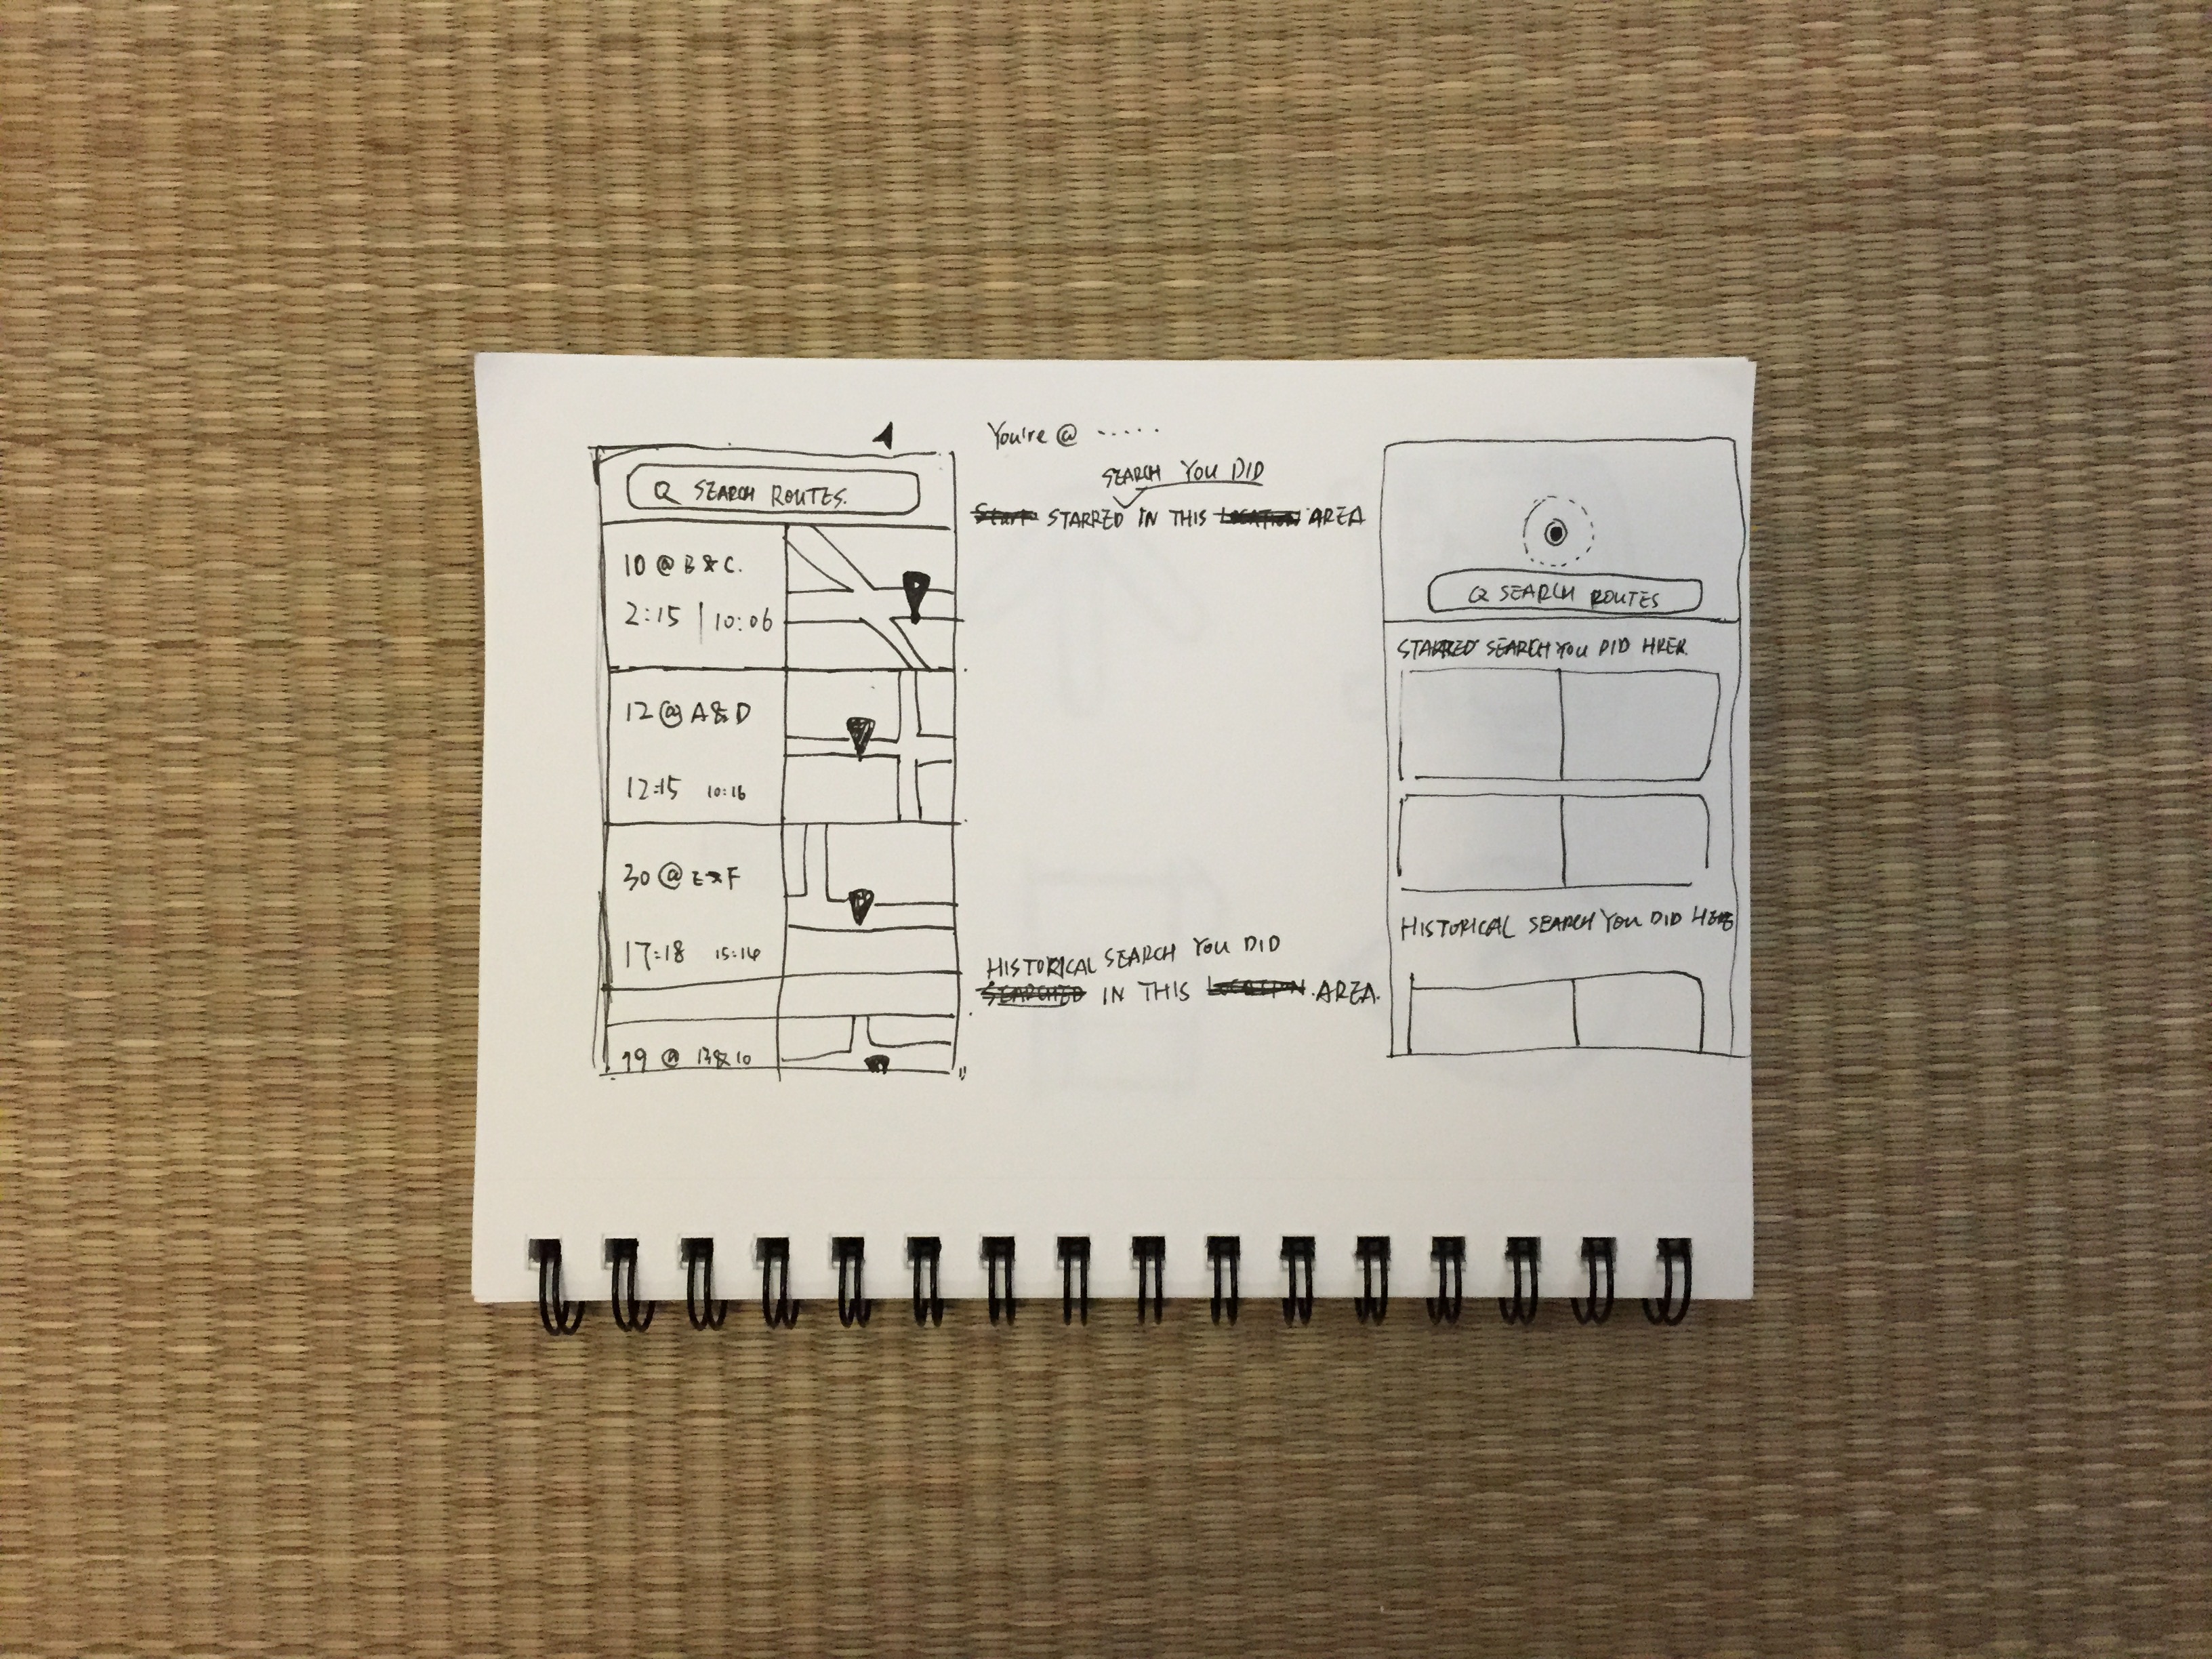 SEARCH ROUTES.
10 @ B & C.
2:15 | 10:06
12 @ A & D
12:15 10:16
30 @ E & F
17:18 15:14
19 @ B & 10
You're @ .....
SEARCH YOU DID
Start STARRED IN THIS LOCATION AREA
HISTORICAL SEARCH YOU DID
SEARCHED IN THIS LOCATION AREA.
SEARCH ROUTES
STARRED SEARCH YOU DID HRER
HISTORICAL SEARCH YOU DID HERE